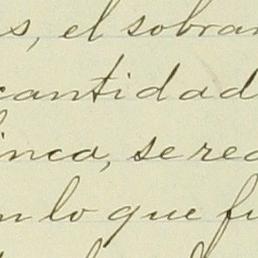 s, el sobran
cantidad
inca, se rec
n lo que fu